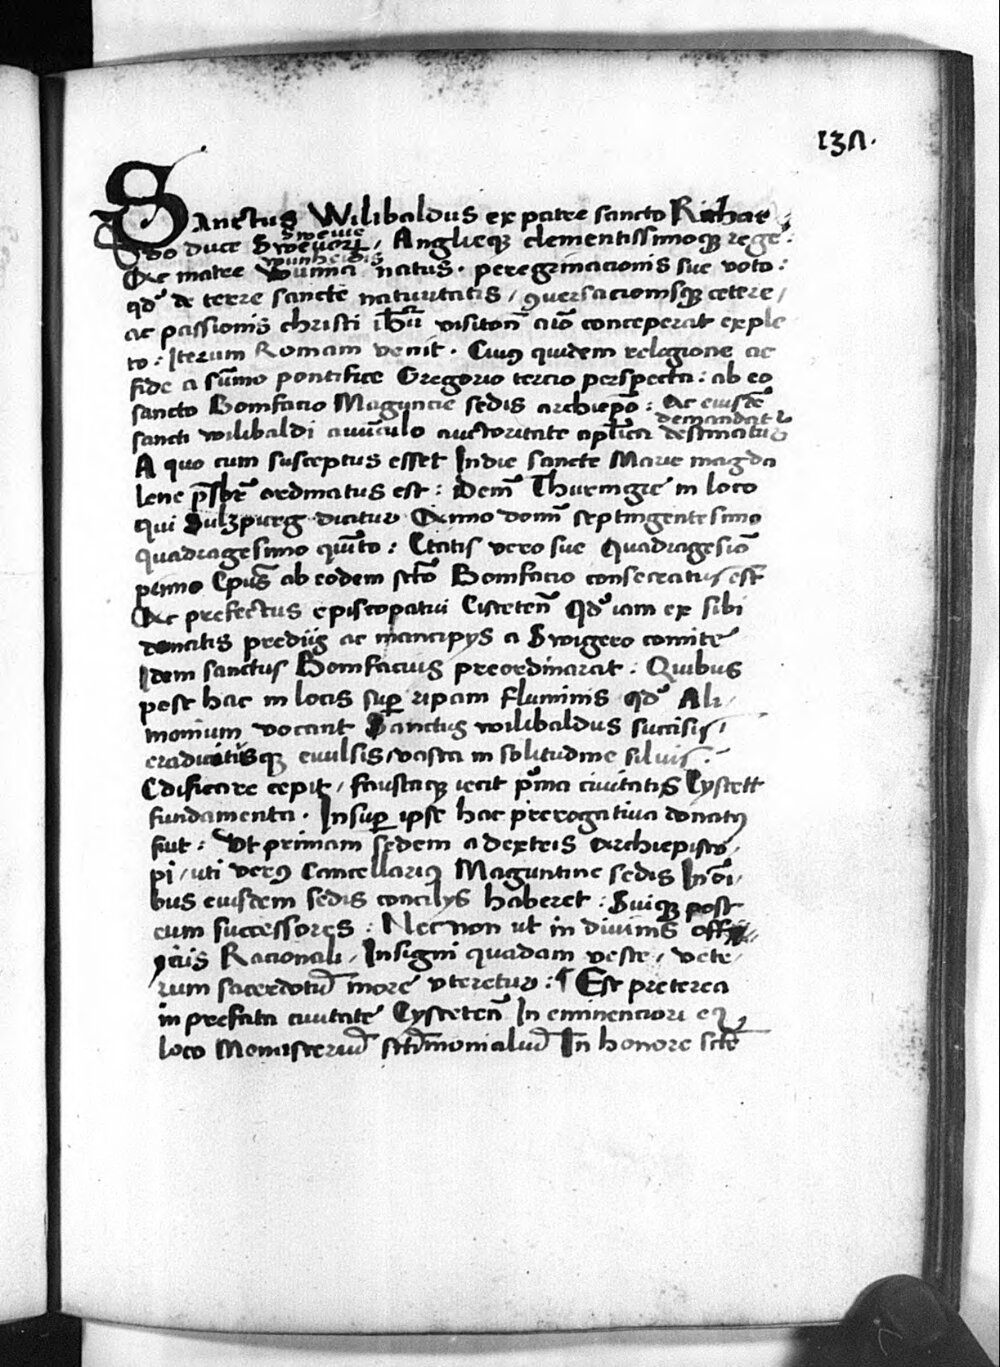 137.
Sanctus Wilibaldus ex patre sancto Richar
swevie
do duce Swevorū, Anglieq̄ꝫ clementissimoq̄ꝫ rege:
wunheidis
Ac matre Wunna natus. peregrinacionis sue voto:
qd' de terre sancte nativitatis, ꝯversacionisq̄ꝫ cetere,
ac passionis christi ihū visitonē aīo conceperat exple
to: Iterum Romam venit. Cuiꝰ quidem religione ac
fide a sūmo pontifice Gregorio tercio perspecta: ab eo
sancto Bonifacio Maguncie sedis archiepō: Ac eiusdē
demandatur
sancti wilibaldi avūculo auctoritate aplīca destinatur
A quo cum susceptus esset In die sancte Marie magda
lene p̄sbr̄ ordinatus est: idem Thuringie in loco
qui Sulzpurg dicitur Anno domī septingentesimo
quadragesimo quīto: Etatis vero sue Quadragesiō
primo Epūs ab eodem sctō Bonifacio consecratus est
Ac prefectus episcopatui Eistetenī Qd' iam ex sibi
donatis prediis ac mancipys a Swigero comite
Idem sanctus Bonifacius preordinarat: Quibus
post hac in locis sup̱ ripam fluminis qd' Ali,
monium vocant Sanctus wilibaldus succisis,
eradicatisq̄ꝫ evulsis, vasta in solitudine silvis:
Edificare cepit, faustaq̄ꝫ iecit p̄ma civitatis Eystett
fundamenta. Insup̱ ipse hac prerogativa donatꝰ
fuit: Ut primam sedem a dextris Archiepisco,
pi, uti verꝰ Cancellariꝰ Maguntine sedis In oī,
bus eiusdem sedis concilys haberet: Suiq̄ꝫ post
eum successores: Nec non ut in divinis offi
ciis Racionali, Insigni quadam veste, vete,
rum sacerdotū more uteretur: ¶ Est preterea
in prefata civitate Eystetenī In eminenciori eꝰ
loco Monasteriū sctīmonialiū In honore scte